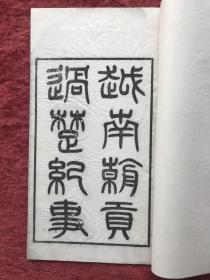 越南朝貢
過楚紀事